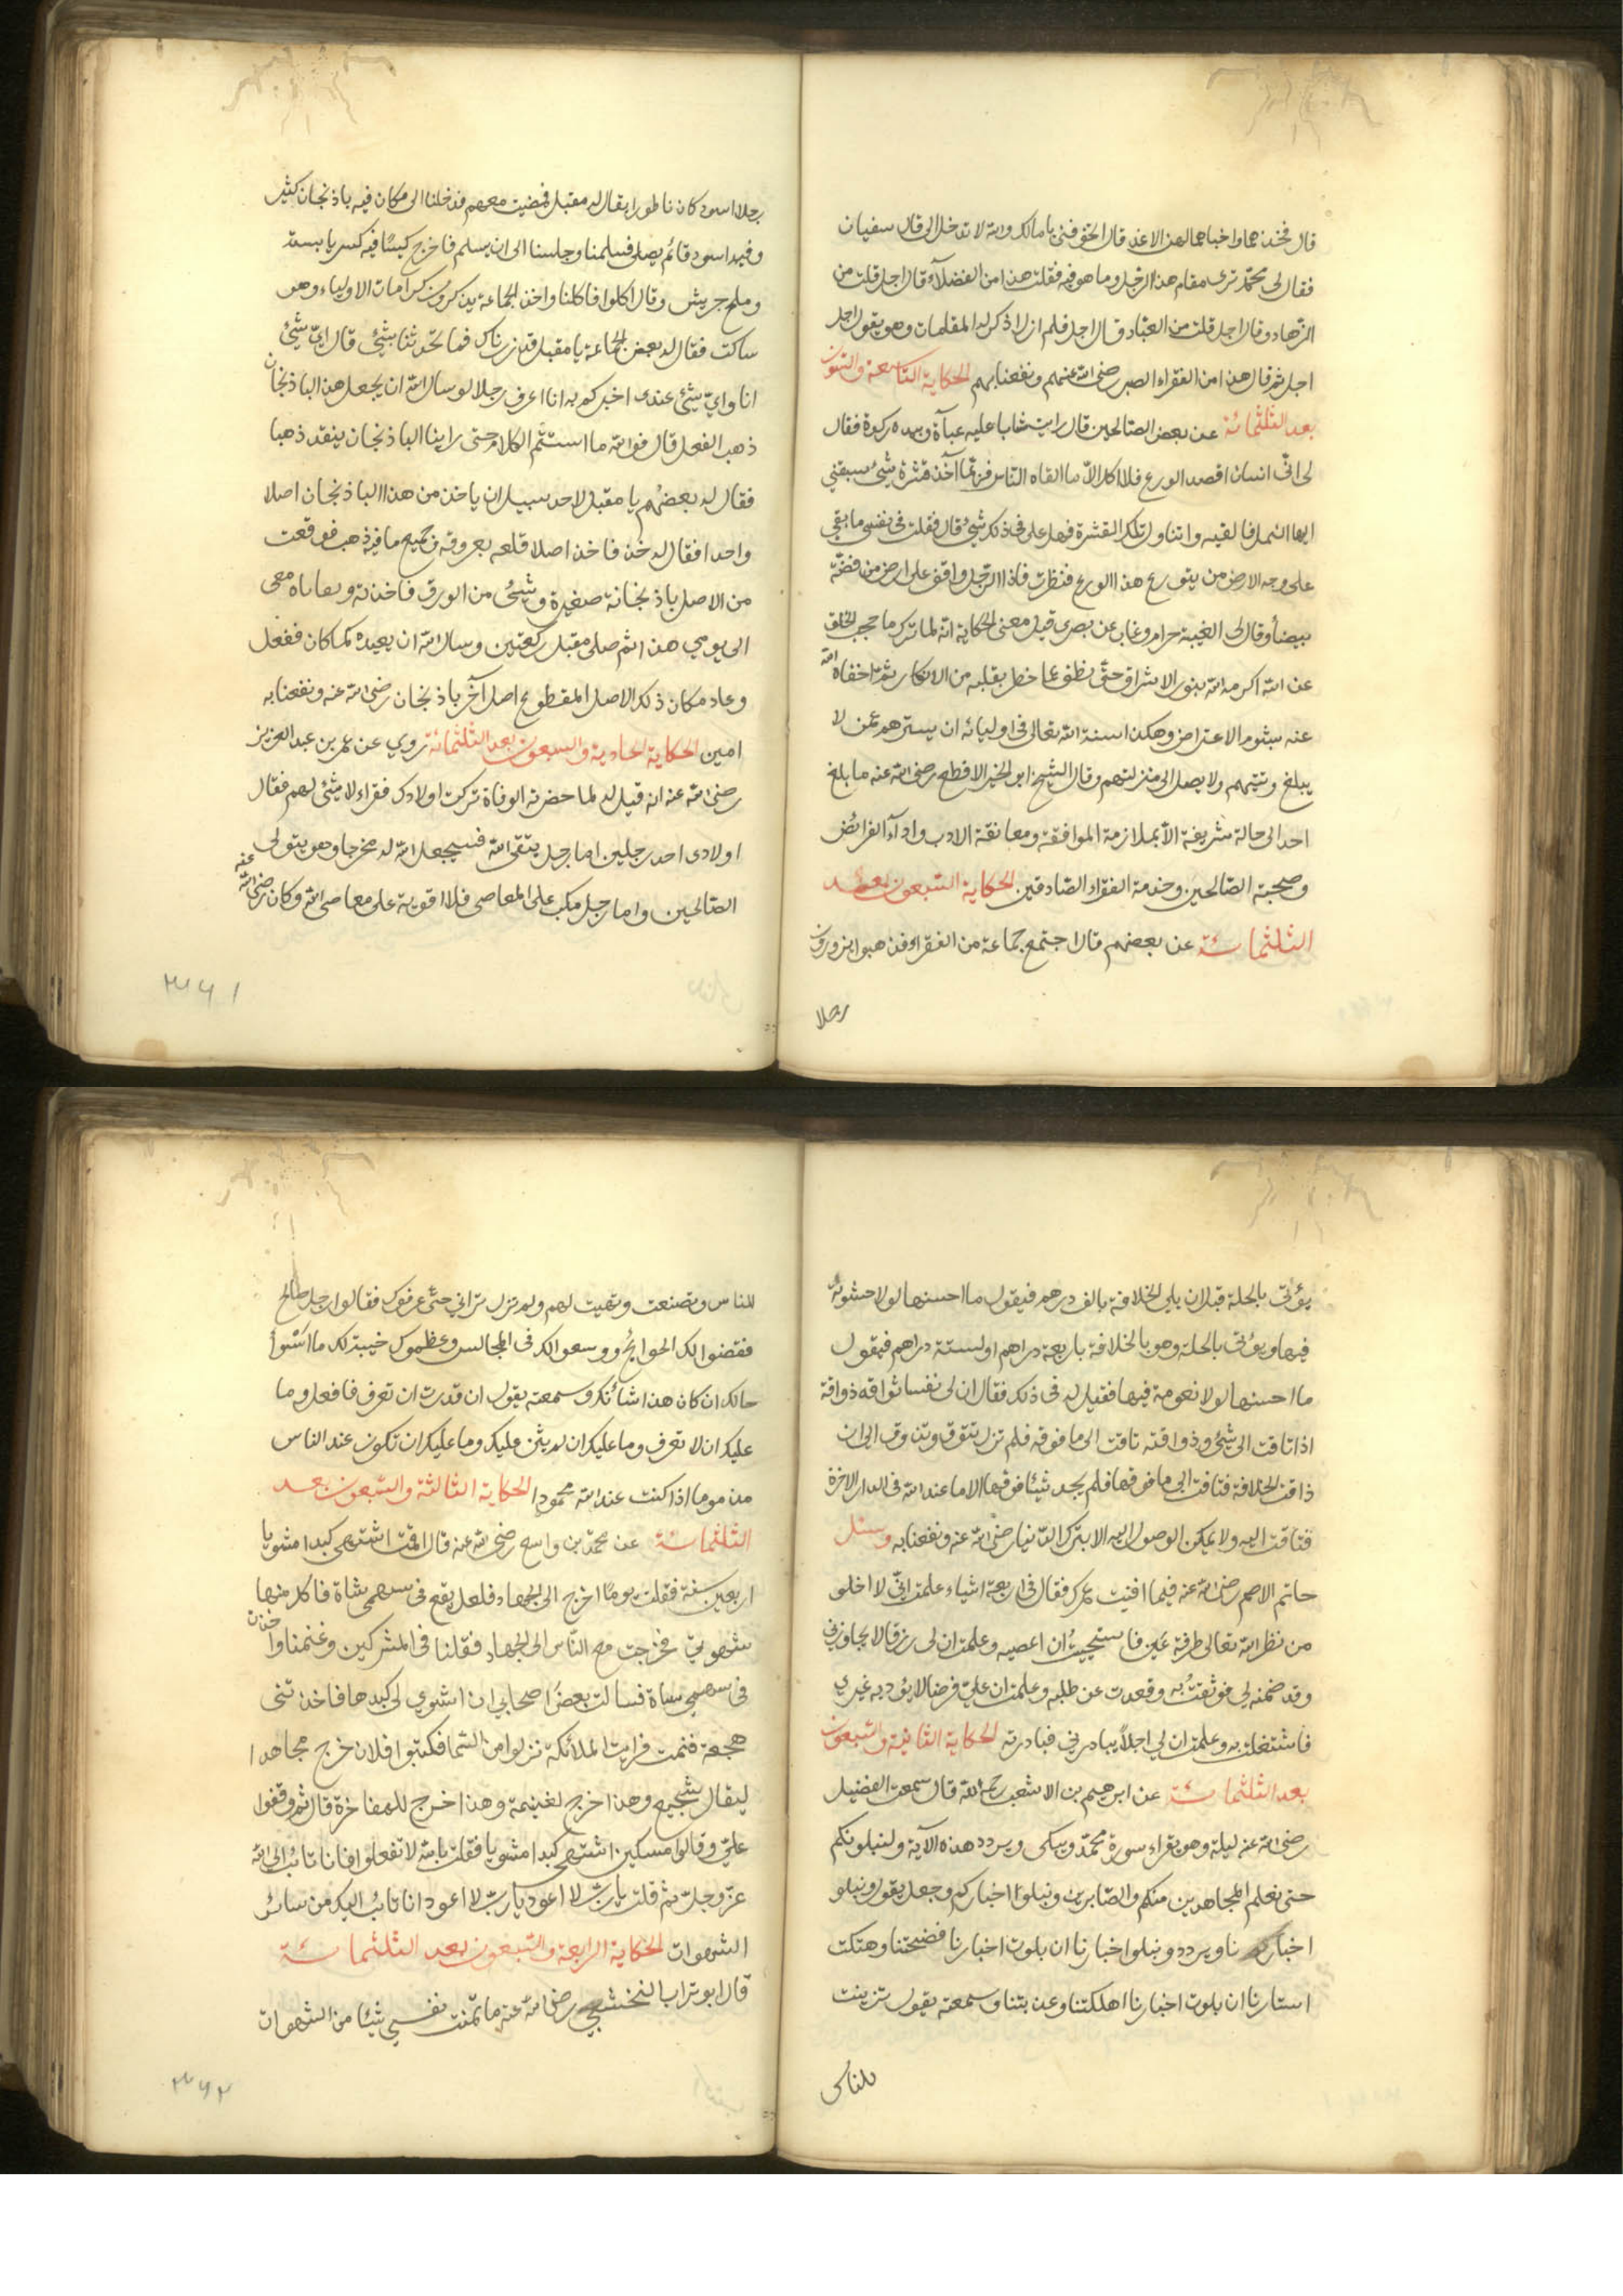 قال فخذهما واخباهما لهذا الاغد قال الحق فتى يا مالك والله لا تدخل الى قال سفيان
فقال لى محمد ترى مقام هذا الرجل وما هو فيه فقلت هذا من الفضلآء قال اجل قلت من
الزهاد وقال اجل قلت من العبّاد وقال اجل فلم ازل اذكر له المقامات وهو يقول اجل
اجل ثم قال هذا من الفقراء الصبر رضى الله عنهم ونفعنا بهم الحكاية التاسعة والستون
بعد الثلثمائة عن بعض الصالحين قال رايت شابا عليه عبآة وبيده ركوة فقال
لى انّى انسان اقصد الورع فلا اكل الاّ ما القاه الناس فربّما آخذ قشرة شئ سبقنى
ايها النمل فالقيه واتناول تلك القشرة فهل على فى ذلك شئ قال فقلت فى نفسى ما بقى
على وجه الارض من يتورع هذا الورع فنظرت فاذا الرجل واقف على ارض من فضّة
بيضأ وقال لى الغيبة حرام وغاب عن بصرى قيل معنى الحكاية انه لما ترك ما حجب الخلق
عن الله اكرمه الله بنور الاشراق حتّى نظق عما خطر بقلبه من الانكار ثمّ اخفاه الله
عنه بشوم الاعتراض وهكذا سنة الله تعالى فى اوليائه ان يسترهم عمّن لا
يبلغ رتبتهم ولا يصل الى منزلتهم وقال الشيخ ابو الخير الاقطع رضى الله عنه ما بلغ
احد الى حالة شريفة الاّ بملازمة الموافقة ومعانقة الادب واداء الفرائض
وصحبة الصالحين وخدمة الفقراء الصادقين الحكاية السبعون بعد
الثلثمائة عن بعضهم قال اجتمع جماعة من الفقراء فذهبوا يزورون
رجلا
رجلا اسود كان ناطورا يقال له مقبل فمضيت معهم فدخلنا الى مكان فيه باذنجان كثير
وفيه اسود قائم يصلى فسلمنا وجلسنا الى ان يسلم فاخرج كيسًا فيه كسر يابسة
وملح جريش وقال اكلوا فاكلنا واخذ الجماعة يذكرون كرامات الاولياء وهو
ساكت فقال له بعض الجماعة يا مقبل قد زرناك فما تحدثنا بشئ قال اىّ شئ
انا واىّ شئ عندى اخبركم به انا اعرف رجلا لو سال الله ان يجعل هذا الباذنجان
ذهبا لفعل قال فوالله ما استتم الكلام حتى راينا الباذنجان ينقد ذهبا
فقال له بعضهم يا مقبل لاحد سبيل ان ياخذ من هذا الباذنجان اصلا
واحدا فقال له خذ فاخذ اصلا قلعه بعروقه وجميع ما فيه ذهب فوقعت
من الاصل باذنجانة صغيرة وشئ من الورق فاخذته وبقاياه معى
الى يومى هذا ثم صلى مقبل ركعتين وسال الله ان يعيده كما كان ففعل
وعاد مكان ذلك الاصل المقطوع اصل آخر باذنجان رضى الله عنه ونفعنا به
امين الحكاية الحادية والسبعون بعد الثلثمائة روى عن عمر بن عبد العزيز
رضى الله عنه انه قيل له لما حضرته الوفاة تركت اولادك فقراء لا شئ لهم فقال
اولادى احد رجلين اما رجل يتقى الله فسيجعل الله له مخرجا وهو يتولى
الصالحين واما رجل مكب على المعاصى فلا اقويه على معاصى الله وكان رضى الله عنه
٣٦١
يؤتى بالحلة قبل ان يلى الخلافة بالف درهم فيقول ما احسنها لولا خشونة
فيها ويؤتى بالحلة وهو بالخلافة باربعة دراهم او لستة دراهم فيقول
ما احسنها لولا نعومة فيها فقيل له فى ذلك فقال ان لى نفسا تواقة ذواقة
اذا تاقت الى شئ وذواقته تاقت الى ما فوقه فلم تزل تتوق وتذوق الى ان
ذاقت الخلافة فتاقت الى ما فوقها فلم يجد شيئا فوقها الا ما عند الله فى الدار الاخرة
فتاقت اليه ولا يمكن الوصول اليه الا بترك الدنيا رضى الله عنه ونفعنا به وسئل
حاتم الاصم رضى الله عنه فيما افنيت عمرك فقال فى اربعة اشياء علمت انّى لا اخلو
من نظر الله تعالى طرفة عين فاستحييت ان اعصيه وعلمت ان لى رزقا لا يجاوزنى
وقد ضمنه لى فوثقت به وقعدت عن طلبه وعلمت ان علىّ فرضا لا يؤديه غيرى
فاشتغلت به وعلمت ان لى اجلاً يبادرنى فبادرته الحكاية الثانية والسبعون
بعد الثلثمائة عن ابرهيم بن الاشعب رحمه الله قال سمعت الفضيل
رضى الله عنه ليلة وهو يقراء سورة محمّد ويبكى ويردد هذه الآية ولنبلونكم
حتى نعلم المجاهدين منكم والصابرين ونبلوا اخباركم وجعل يقول ونبلو
اخباركم نا ويردد ونبلوا اخبارنا ان بلوت اخبارنا فضحتنا وهتكت
استارنا ان بلوت اخبارنا اهلكتنا وعذبتنا وسمعته يقول تزينت
للناس
للناس وتصنعت وتهيت لهم ولم تزل ترائى حتّى عرفوك فقالوا رجل صالح
فقضوا لك الحوائج ووسعوا لك فى المجالس وعظموك خيبة لك ما اسوأ
حالك ان كان هذا شأنك وسمعته يقول ان قدرت ان تعرف فافعل وما
عليك ان لا تعرف وما عليك ان لم يثن عليك وما عليك ان تكون عند الناس
مذموما اذا كنت عند الله محمودا الحكاية الثالثة والسبعون بعد
الثلثمائة عن محمد بن واسع رضى الله عنه قال اقمت اشتهى كبدا مشويا
اربعين سنة فقلت يومًا اخرج الى الجهاد فلعل يقع فى سهمى شاة فاكل منها
شهوتى فخرجت مع النّاس الى الجهاد فقلنا فى المشركين وغنمنا واخذت
فى سهمى شاة فسالت بعض اصحابى ان اشوى لى كبدها فاخذتنى
هجعة فنمت فرايت الملائكة نزلوا من السّما فكتبوا فلان خرج مجاهدا
ليقال شجيع وهذا خرج لغنيمة وهذا خرج للمفاخرة قال ثم وقفوا
علىّ وقالوا مسكين اشتهى كبدا مشويا فقلت بالله لا تفعلوا فانا تائب الى الله
عزّ وجلّ ثم قلت يا ربّ لا اعود يا ربّ لا اعود انا تائب اليك من سائر
الشهوات الحكاية الرابعة والسبعون بعد الثلثمائة
قال ابو تراب النخشبى رضى الله عنه ما تمنت نفسى شيئا من الشهوات
٣٦٢